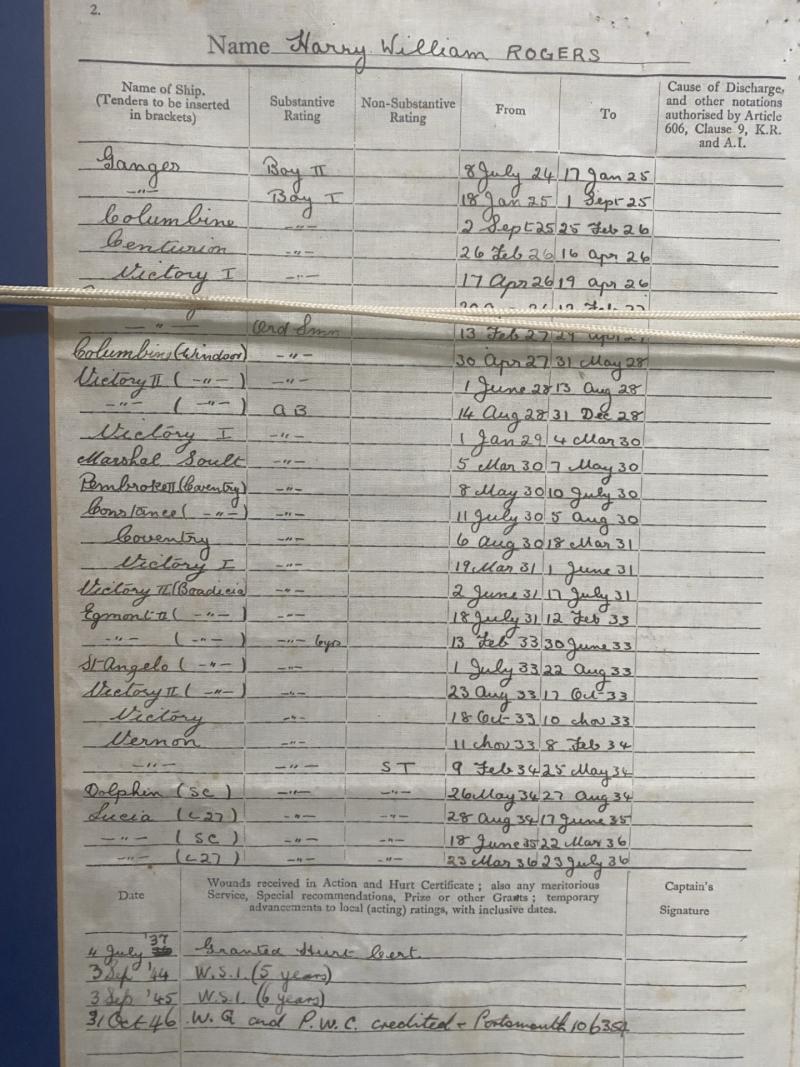 2.
Name Harry William ROGERS
Name of Ship. (Tenders to be inserted in brackets) Substantive Rating Non-Substantive Rating From To Cause of Discharge, and other notations authorised by Article 606, Clause 9, K.R. and A.I.
Ganges Boy II 8 July 24 17 Jan 25
-"- Boy I 18 Jan 25 1 Sept 25
Columbine -"- 2 Sept 25 25 Feb 26
Centurion -"- 26 Feb 26 16 Apr 26
Victory I -"- 17 Apr 26 19 Apr 26
-"- Ord Smn 13 Feb 27 29
Columbine (Windsor) -"- 30 Apr 27 31 May 28
Victory II (-"-) -"- 1 June 28 13 Aug 28
-"- (-"-) AB 14 Aug 28 31 Dec 28
Victory I -"- 1 Jan 29 4 Mar 30
Marshal Soult -"- 5 Mar 30 7 May 30
Pembroke II (Coventry) -"- 8 May 30 10 July 30
Constance (-"-) -"- 11 July 30 5 Aug 30
Coventry -"- 6 Aug 30 18 Mar 31
Victory I -"- 19 Mar 31 1 June 31
Victory II (Boadicia) -"- 2 June 31 17 July 31
Egmont II (-"-) -"- 18 July 31 12 Feb 33
-"- (-"-) -"- 6yrs 13 Feb 33 30 June 33
St Angelo (-"-) -"- 1 July 33 22 Aug 33
Victory II (-"-) -"- 23 Aug 33 17 Oct 33
Victory -"- 18 Oct 33 10 Nov 33
Vernon -"- 11 Nov 33 8 Feb 34
-"- -"- ST 9 Feb 34 25 May 34
Dolphin (SC) -"- -"- 26 May 34 27 Aug 34
Lucia (L27) -"- -"- 28 Aug 34 17 June 35
-"- (SC) -"- -"- 18 June 35 22 Mar 36
-"- (L27) -"- -"- 23 Mar 36 23 July 36
Date Wounds received in Action and Hurt Certificate; also any meritorious Service, Special recommendations, Prize or other Grants; temporary advancements to local (acting) ratings, with inclusive dates. Captain's Signature
4 July '37 Granted Hurt Cert.
3 Sep '44 W.S.I. (5 years)
3 Sep '45 W.S.I. (6 years)
31 Oct 46 W.G and P.W.C. credited - Portsmouth 10635